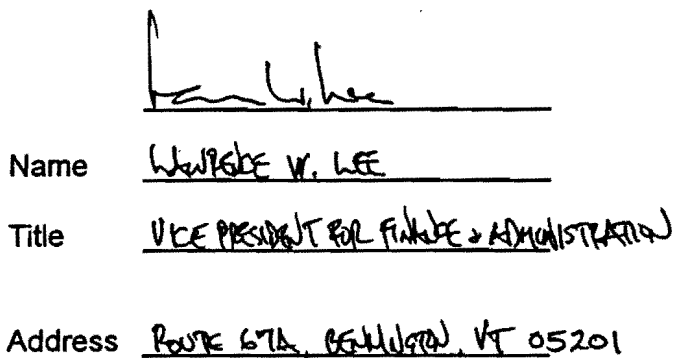 Lawrence W. Lee
Name LAWRENCE W. LEE
Title VICE PRESIDENT FOR FINANCE & ADMINISTRATION
Address ROUTE 67A, BENNINGTON, VT 05201